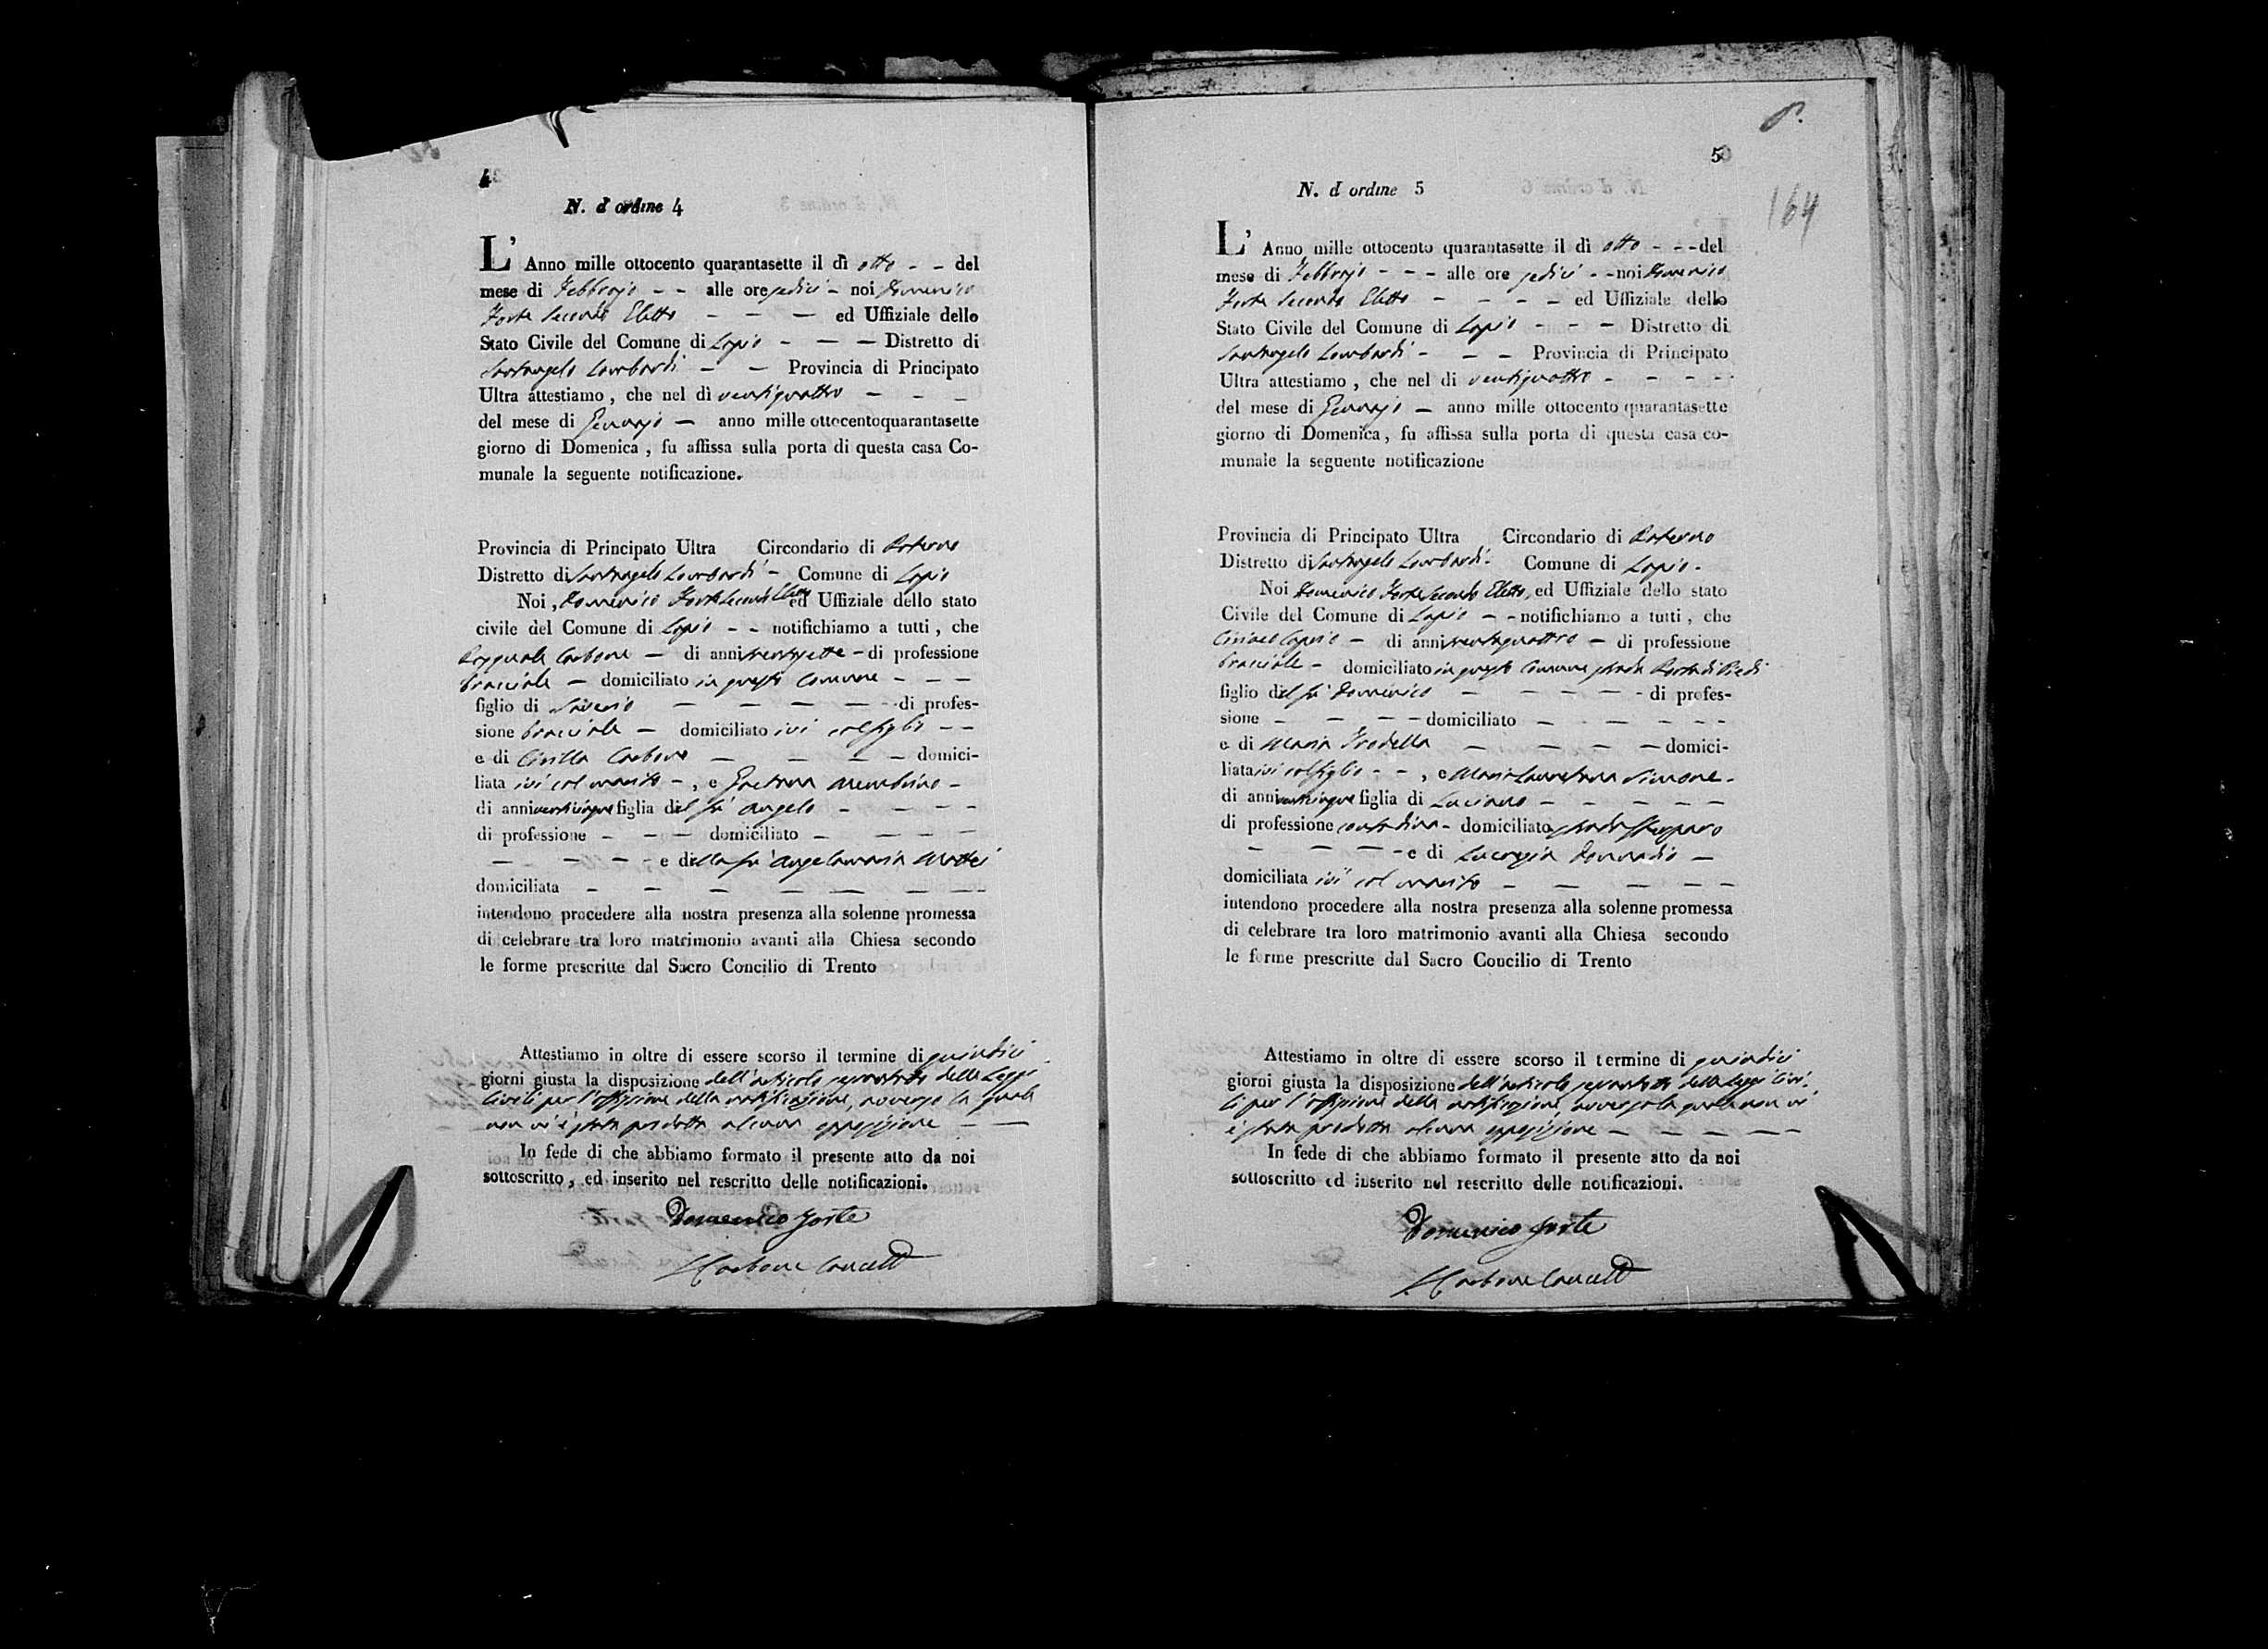 4
N. d'ordine 4
L' Anno mille ottocento quarantasette il dì otto - - del
mese di Febbrajo - - alle ore sedici - noi Domenico
Forte Secondo Eletto - - - ed Uffiziale dello
Stato Civile del Comune di Lapio - - - Distretto di
Santangelo Lombardi - - Provincia di Principato
Ultra attestiamo, che nel dì ventiquattro - - -
del mese di Gennajo - anno mille ottocentoquarantasette
giorno di Domenica, fu affissa sulla porta di questa casa Co-
munale la seguente notificazione.
Provincia di Principato Ultra Circondario di Paterno
Distretto di Santangelo Lombardi - Comune di Lapio
Noi, Domenico Forte Secondo Eletto ed Uffiziale dello stato
civile del Comune di Lapio - - notifichiamo a tutti, che
Pasquale Carbone - di anni - di professione
bracciale - domiciliato in questo Comune - - -
figlio di Saverio - - - - - di profes-
sione bracciale - domiciliato ivi col figlio - -
e di Cirilla Carbone - - - - domici-
liata ivi col marito -, e Gaetana -
di anni venticinque figlia del fu Angelo - - - -
di professione - - - domiciliato - - - -
- - - - e della fu Angelamaria Mattei
domiciliata - - - - - - - -
intendono procedere alla nostra presenza alla solenne promessa
di celebrare tra loro matrimonio avanti alla Chiesa secondo
le forme prescritte dal Sacro Concilio di Trento
Attestiamo in oltre di essere scorso il termine di quindici
giorni giusta la disposizione dell'articolo sessantotto delle Leggi
Civili per l'affissione della notificazione, avverso la quale
non vi è stata prodotta alcuna opposizione - -
In fede di che abbiamo formato il presente atto da noi
sottoscritto, ed inserito nel rescritto delle notificazioni.
Domenico Forte
Carbone Cancell
5
164
N. d ordine 5
L' Anno mille ottocento quarantasette il dì otto - - - del
mese di Febbrajo - - - alle ore sedici - - noi Domenico
Forte Secondo Eletto - - - - ed Uffiziale dello
Stato Civile del Comune di Lapio - - - Distretto di
Santangelo Lombardi - - - Provincia di Principato
Ultra attestiamo, che nel di ventiquattro - - - -
del mese di Gennajo - anno mille ottocento quarantasette
giorno di Domenica, fu affissa sulla porta di questa casa co-
munale la seguente notificazione
Provincia di Principato Ultra Circondario di Paterno
Distretto di Santangelo Lombardi - Comune di Lapio -
Noi Domenico Forte Secondo Eletto, ed Uffiziale dello stato
Civile del Comune di Lapio - - notifichiamo a tutti, che
Ciriaco Caprio - di anni - di professione
bracciale - domiciliato in questo Comune strada Porta di Piedi
figlio del fu Domenico - - - - - di profes-
sione - - - - domiciliato - - - - -
e di Maria - - - - domici-
liata ivi col figlio - -, e Simone -
di anni venticinque figlia di Luciano - - - - -
di professione contadina - domiciliato strada
- - - - e di Lucrezia -
domiciliata ivi col marito - - - - -
intendono procedere alla nostra presenza alla solenne promessa
di celebrare tra loro matrimonio avanti alla Chiesa secondo
le forme prescritte dal Sacro Concilio di Trento
Attestiamo in oltre di essere scorso il termine di quindici
giorni giusta la disposizione dell'articolo sessantotto delle Leggi Civi-
li per l'affissione della notificazione, avverso la quale non vi
è stata prodotta alcuna opposizione - - - - -
In fede di che abbiamo formato il presente atto da noi
sottoscritto ed inserito nel rescritto delle notificazioni.
Domenico Forte
Carbone Cancell